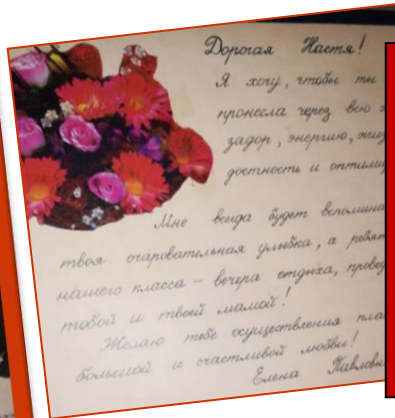 Дорогая Настя!
Я хочу, чтобы ты
пронесла через всю
задор, энергию,
достность и
Мне всегда будет
твоя очаровательная улыбка, а
нашего класса – вечера отдыха,
тобой и твоей мамой!
Желаю тебе осуществления
большой и счастливой любви!
Елена